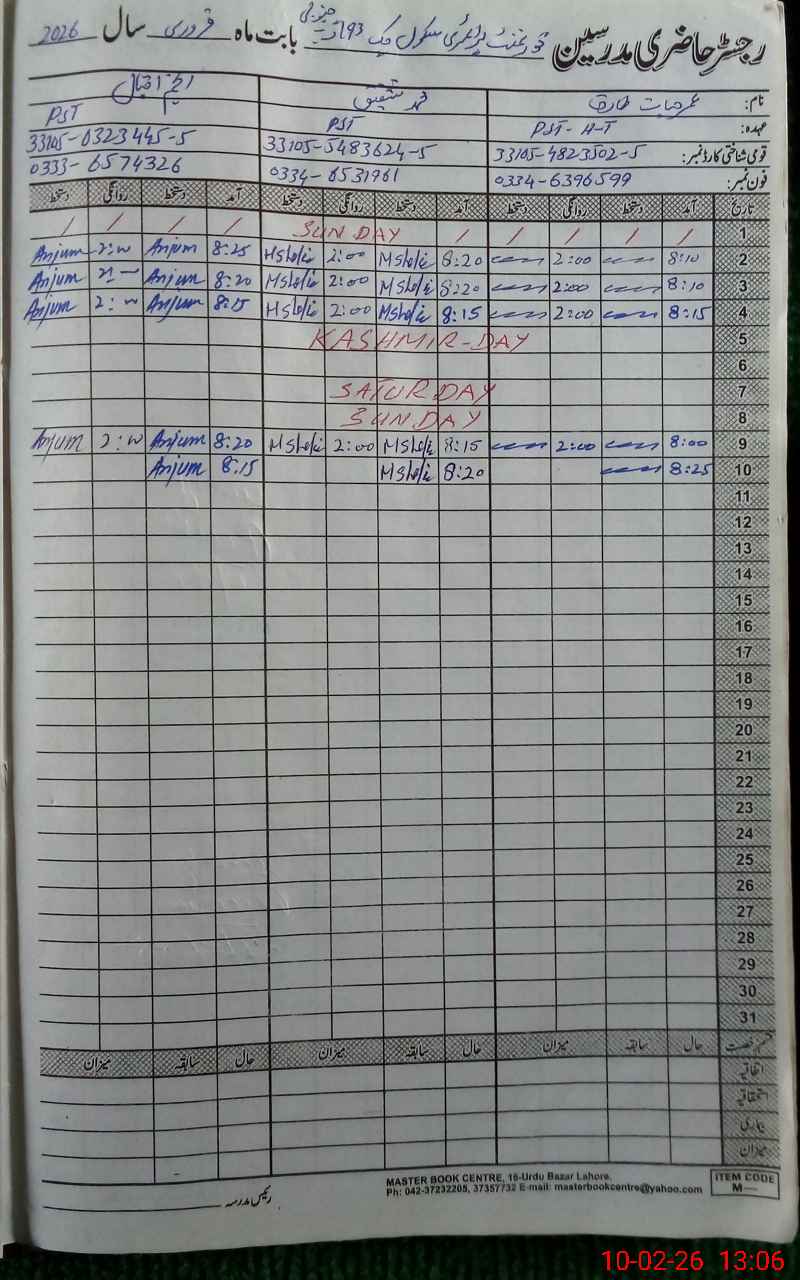 رجسٹر حاضری مدرسین گورنمنٹ پرائمری سکول چک 93 جنوبی بابت ماہ فروری سال 2026
نام: عمر حیات طارق محمد شفیق انجم اقبال
عہدہ: PST-H-T PST PST
قومی شناختی کارڈ نمبر: 33105-4823502-5 33105-5483624-5 33105-6323445-5
فون نمبر: 0334-6396599 0334-6531961 0333-6574326
تاریخ آمد دستخط روانگی دستخط آمد دستخط روانگی دستخط آمد دستخط روانگی دستخط
1 / / / / / SUNDAY / / / /
2 8:10 2:00 8:20 MShafi 2:00 MShafi 8:25 Anjum 2:00 Anjum
3 8:10 2:00 8:20 MShafi 2:00 MShafi 8:20 Anjum Anjum
4 8:15 2:00 8:15 MShafi 2:00 MShafi 8:15 Anjum 2:00 Anjum
5 KASHMIR-DAY
6
7 SATURDAY
8 SUNDAY
9 8:00 2:00 8:15 MShafi 2:00 MShafi 8:20 Anjum 2:00 Anjum
10 8:25 8:20 MShafi 8:15 Anjum
11
12
13
14
15
16
17
18
19
20
21
22
23
24
25
26
27
28
29
30
31
قسم رخصت حال سابقہ میزان حال سابقہ میزان حال سابقہ میزان
اتفاقیہ
استحقاقیہ
بیماری
میزان
رئیس مدرسہ
MASTER BOOK CENTRE, 16-Urdu Bazar Lahore.
Ph: 042-37232205, 37357732 E-mail: masterbookcentre@yahoo.com
ITEM CODE
M—
10-02-26 13:06